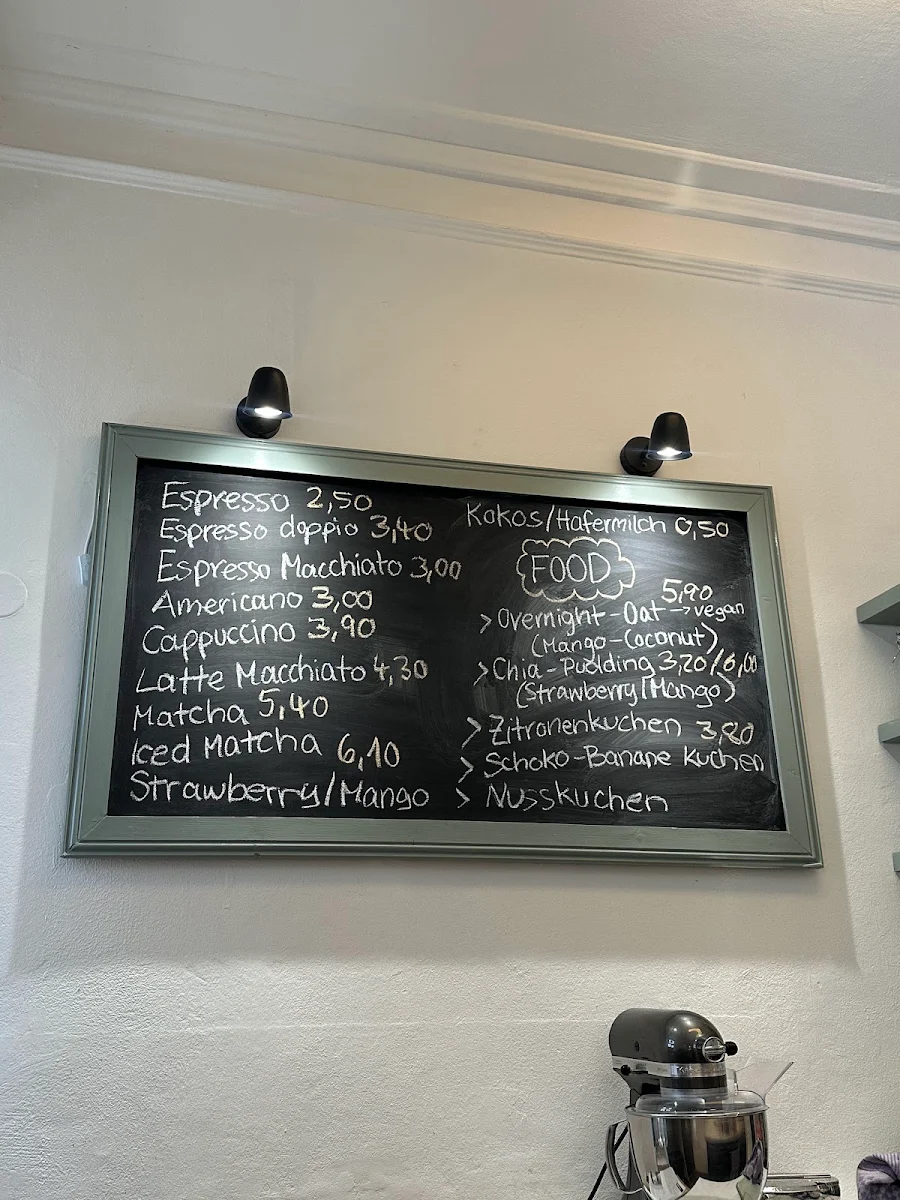 Espresso 2,50
Espresso doppio 3,40
Espresso Macchiato 3,00
Americano 3,00
Cappuccino 3,90
Latte Macchiato 4,30
Matcha 5,40
Iced Matcha 6,10
Strawberry/Mango
Kokos/Hafermilch 0,50
FOOD
5,90
> Overnight-Oat → vegan
(Mango-Coconut)
> Chia-Pudding 3,20/6,00
(Strawberry/Mango)
> Zitronenkuchen 3,80
> Schoko-Banane Kuchen
> Nusskuchen